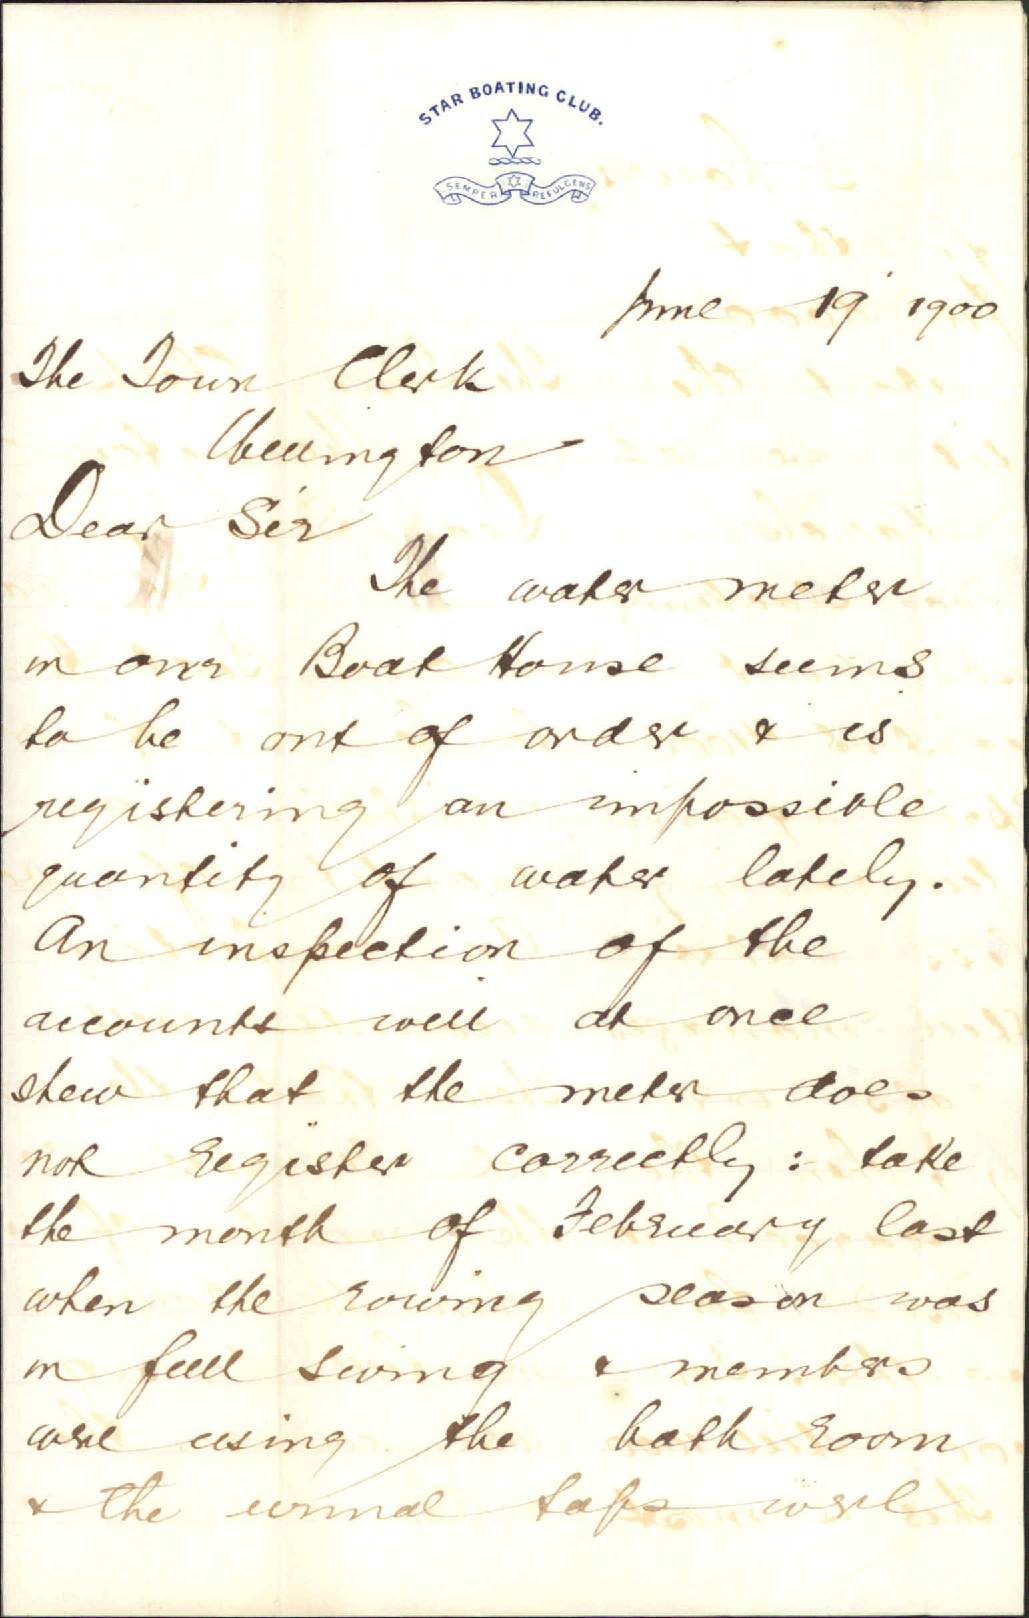 STAR BOATING CLUB.
SEMPER REFULGENS
June 19 1900
The Town Clerk
Wellington
Dear Sir
The water meter
in our Boat House seems
to be out of order & is
registering an impossible
quantity of water lately.
An inspection of the
accounts will at once
shew that the meter does
not register correctly: take
the month of February last
when the rowing season was
in full swing & members
were using the bath room
& the urinal taps were